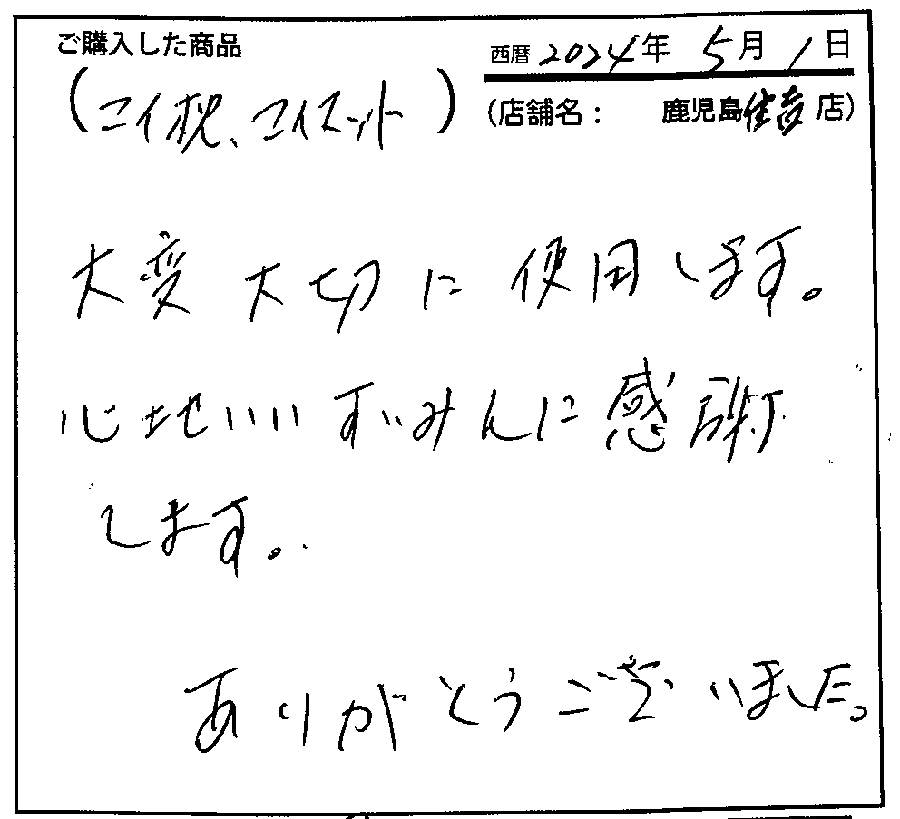 ご購入した商品
西暦 2024年 5月 1日
(コイ枕、コイスット)
(店舗名: 鹿児島住吉店)
大変大切に使用します。
心地いいすいみんに感謝
します。
ありがとうございました。